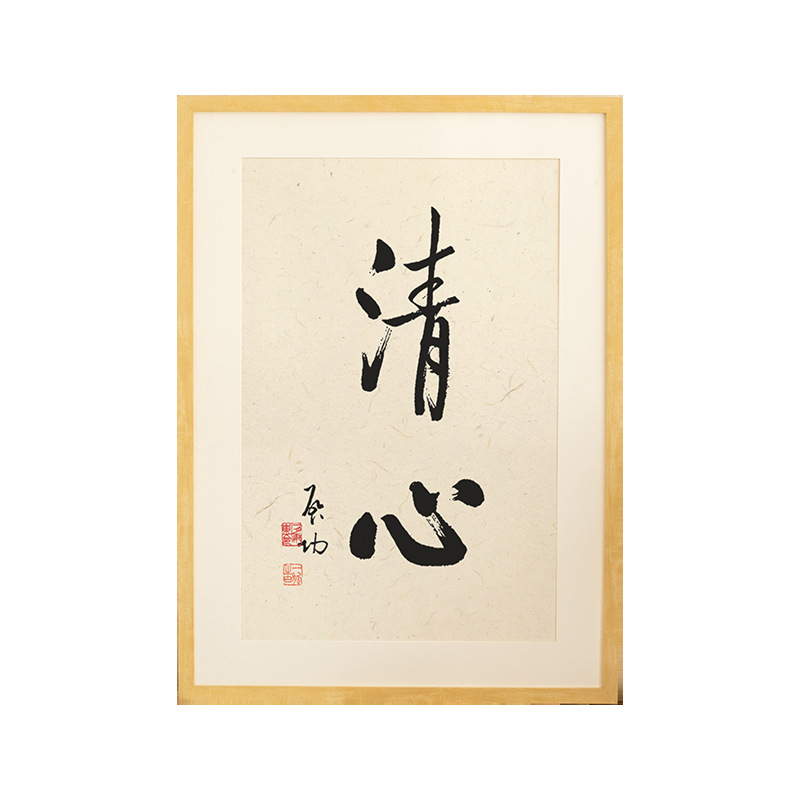 清心
启功